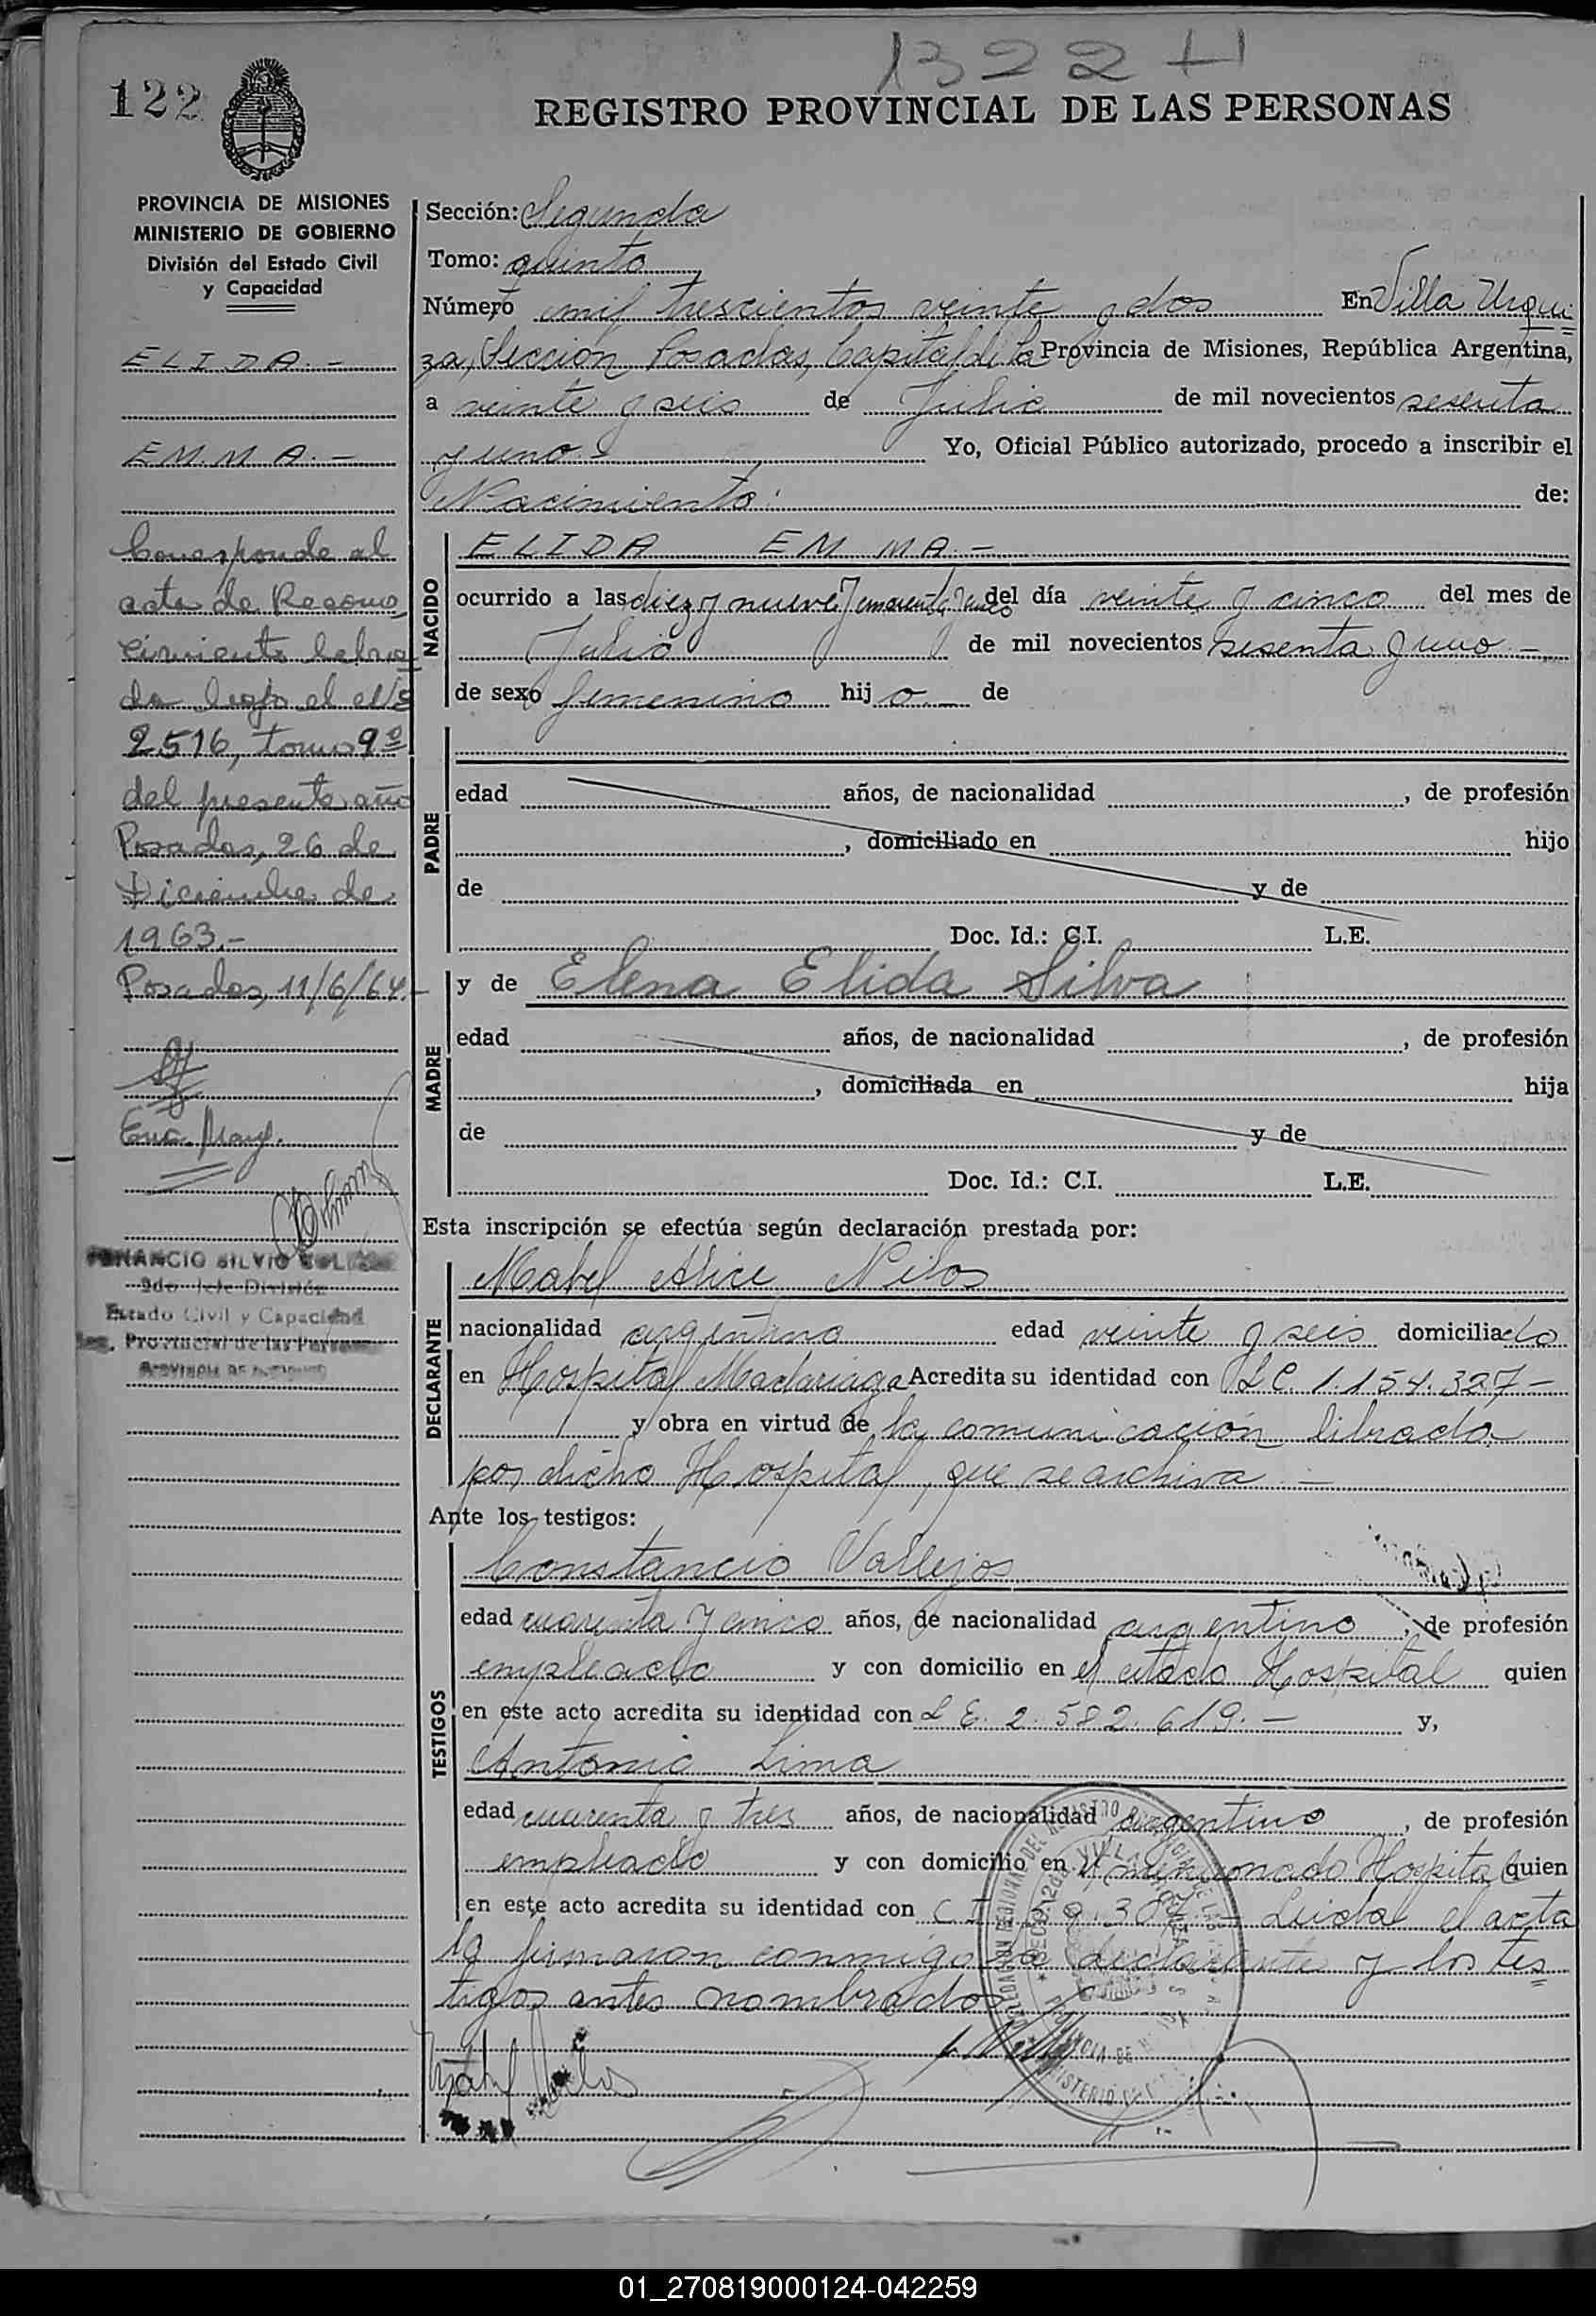 1322 H
122
REGISTRO PROVINCIAL DE LAS PERSONAS
PROVINCIA DE MISIONES
MINISTERIO DE GOBIERNO
División del Estado Civil
y Capacidad
ELIDA.-
EMMA.-
Corresponde al
acta de Recono
cimiento labra
da bajo el el Nº
2516, tomo 9º
del presente año
Posadas, 26 de
Diciembre de
1963.-
Posadas, 11/6/64.-
VENANCIO SILVIO
2do Jefe División
Estado Civil y Capacidad
Reg. Provincial de las Personas
PROVINCIA DE MISIONES
Sección: Segunda
Tomo: quinto
Número mil trescientos veinte y dos En Villa Urqui
za, Sección Posadas, Capital de la Provincia de Misiones, República Argentina,
a veinte y seis de Julio de mil novecientos sesenta
y uno.- Yo, Oficial Público autorizado, procedo a inscribir el
Nacimiento: de:
NACIDO
ELIDA EMMA.-
ocurrido a las diez y nueve y cuarenta y cinco del día veinte y cinco del mes de
Julio de mil novecientos sesenta y uno -
de sexo femenino hij o de
PADRE
edad años, de nacionalidad , de profesión
, domiciliado en hijo
de y de
Doc. Id.: C.I. L.E.
MADRE
y de Elena Elida Silva
edad años, de nacionalidad , de profesión
, domiciliada en hija
de y de
Doc. Id.: C.I. L.E.
Esta inscripción se efectúa según declaración prestada por:
DECLARANTE
Mabel Alice
nacionalidad argentina edad veinte y seis domiciliado
en Hospital Madariaga Acredita su identidad con L C. 1.154.327-
y obra en virtud de la comunicación librada
por dicho Hospital, que se archiva -
Ante los testigos:
TESTIGOS
Constancio Vallejos
edad cuarenta y cinco años, de nacionalidad argentino , de profesión
empleado y con domicilio en el citado Hospital quien
en este acto acredita su identidad con L E. 2.582.619.- y,
Antonio Lima
edad cuarenta y tres años, de nacionalidad argentino , de profesión
empleado y con domicilio en el mencionado Hospital quien
en este acto acredita su identidad con C I Leida el acta
la firmaron conmigo la declarante y los tes
tigos antes nombrados
01_270819000124-042259